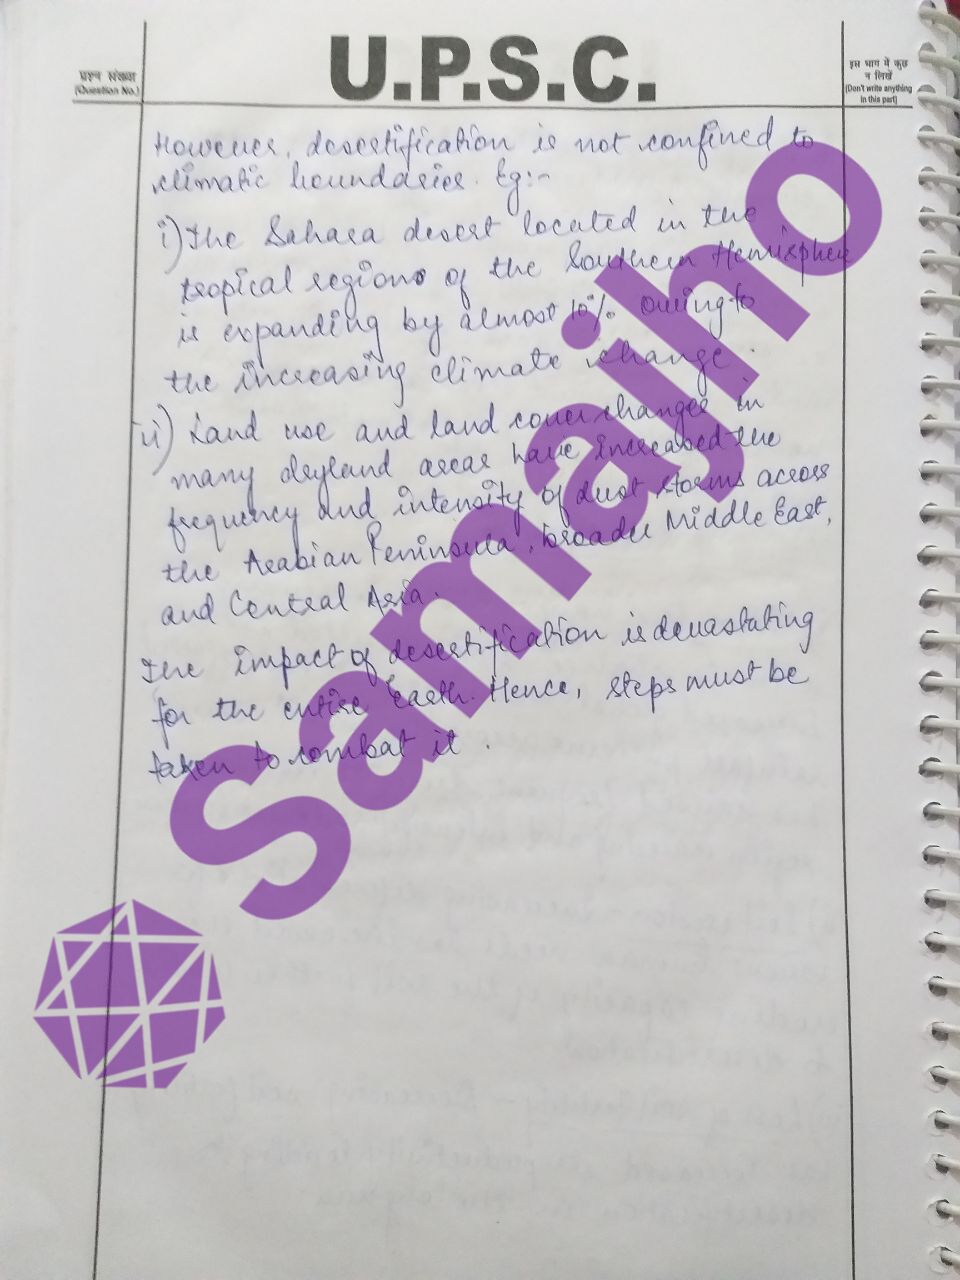 U.P.S.C.
प्रश्न संख्या
(Question No.)
इस भाग में कुछ
न लिखें
(Don't write anything
in this part)
However, desertification is not confined to
climatic boundaries. Eg:-
i) The Sahara desert located in the
tropical regions of the Southern Hemisphere
is expanding by almost 10% owing to
the increasing climate change.
ii) Land use and land cover changes in
many dryland areas have increased the
frequency and intensity of dust storms across
the Arabian Peninsula, broader Middle East,
and Central Asia.
The impact of desertification is devastating
for the entire Earth. Hence, steps must be
taken to combat it.
Samajho